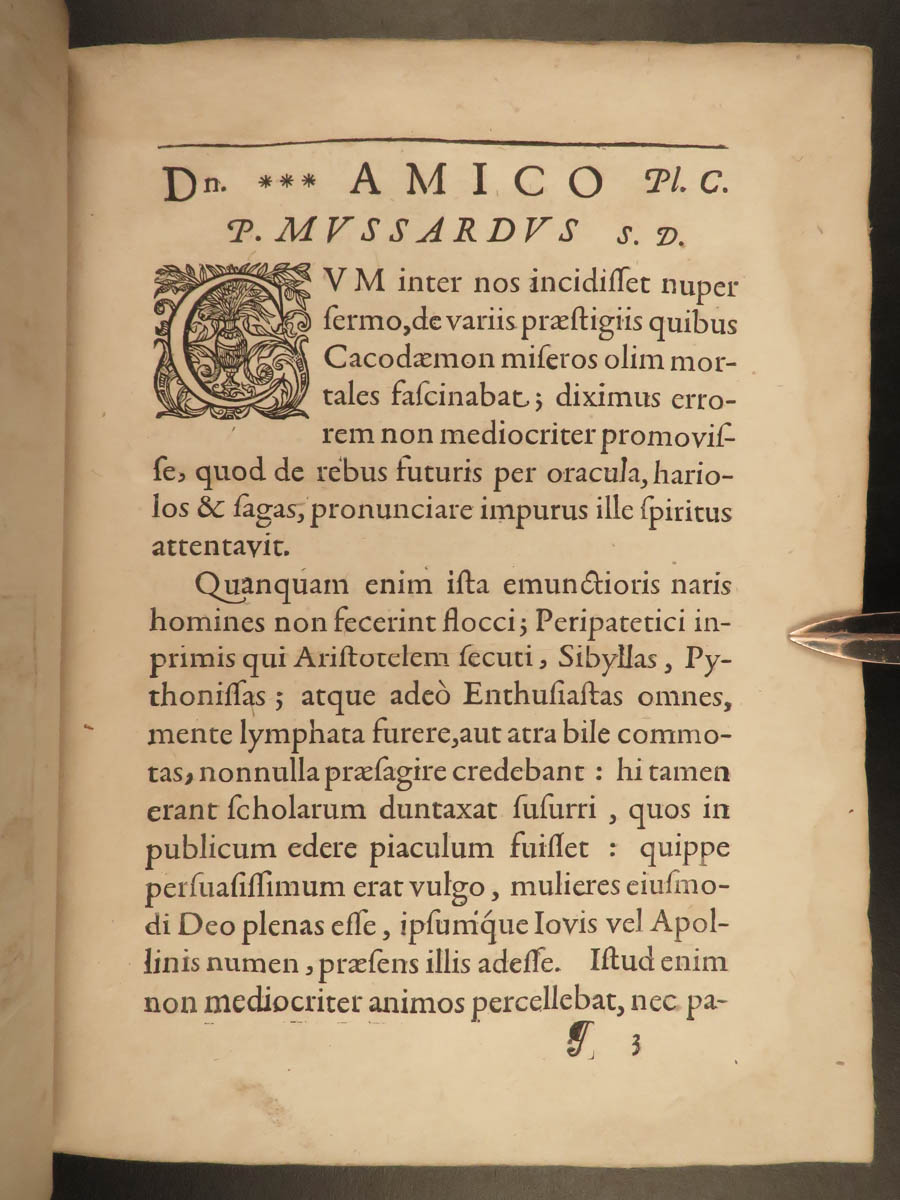 Dn. *** AMICO Pl. C.
P. MVSSARDVS S. D.
CVM inter nos incidiſſet nuper
ſermo, de variis præſtigiis quibus
Cacodæmon miſeros olim mor-
tales faſcinabat; diximus erro-
rem non mediocriter promoviſ-
ſe, quod de rebus futuris per oracula, hario-
los & ſagas, pronunciare impurus ille ſpiritus
attentavit.
Quanquam enim iſta emunctioris naris
homines non fecerint flocci; Peripatetici in-
primis qui Ariſtotelem ſecuti, Sibyllas, Py-
thoniſſas; atque adeò Enthuſiaſtas omnes,
mente lymphata furere, aut atra bile commo-
tas, nonnulla præſagire credebant: hi tamen
erant ſcholarum duntaxat ſuſurri, quos in
publicum edere piaculum fuiſſet: quippe
perſuaſiſſimum erat vulgo, mulieres eiuſmo-
di Deo plenas eſſe, ipſumq́ue Iovis vel Apol-
linis numen, præſens illis adeſſe. Iſtud enim
non mediocriter animos percellebat, nec pa-
¶ 3